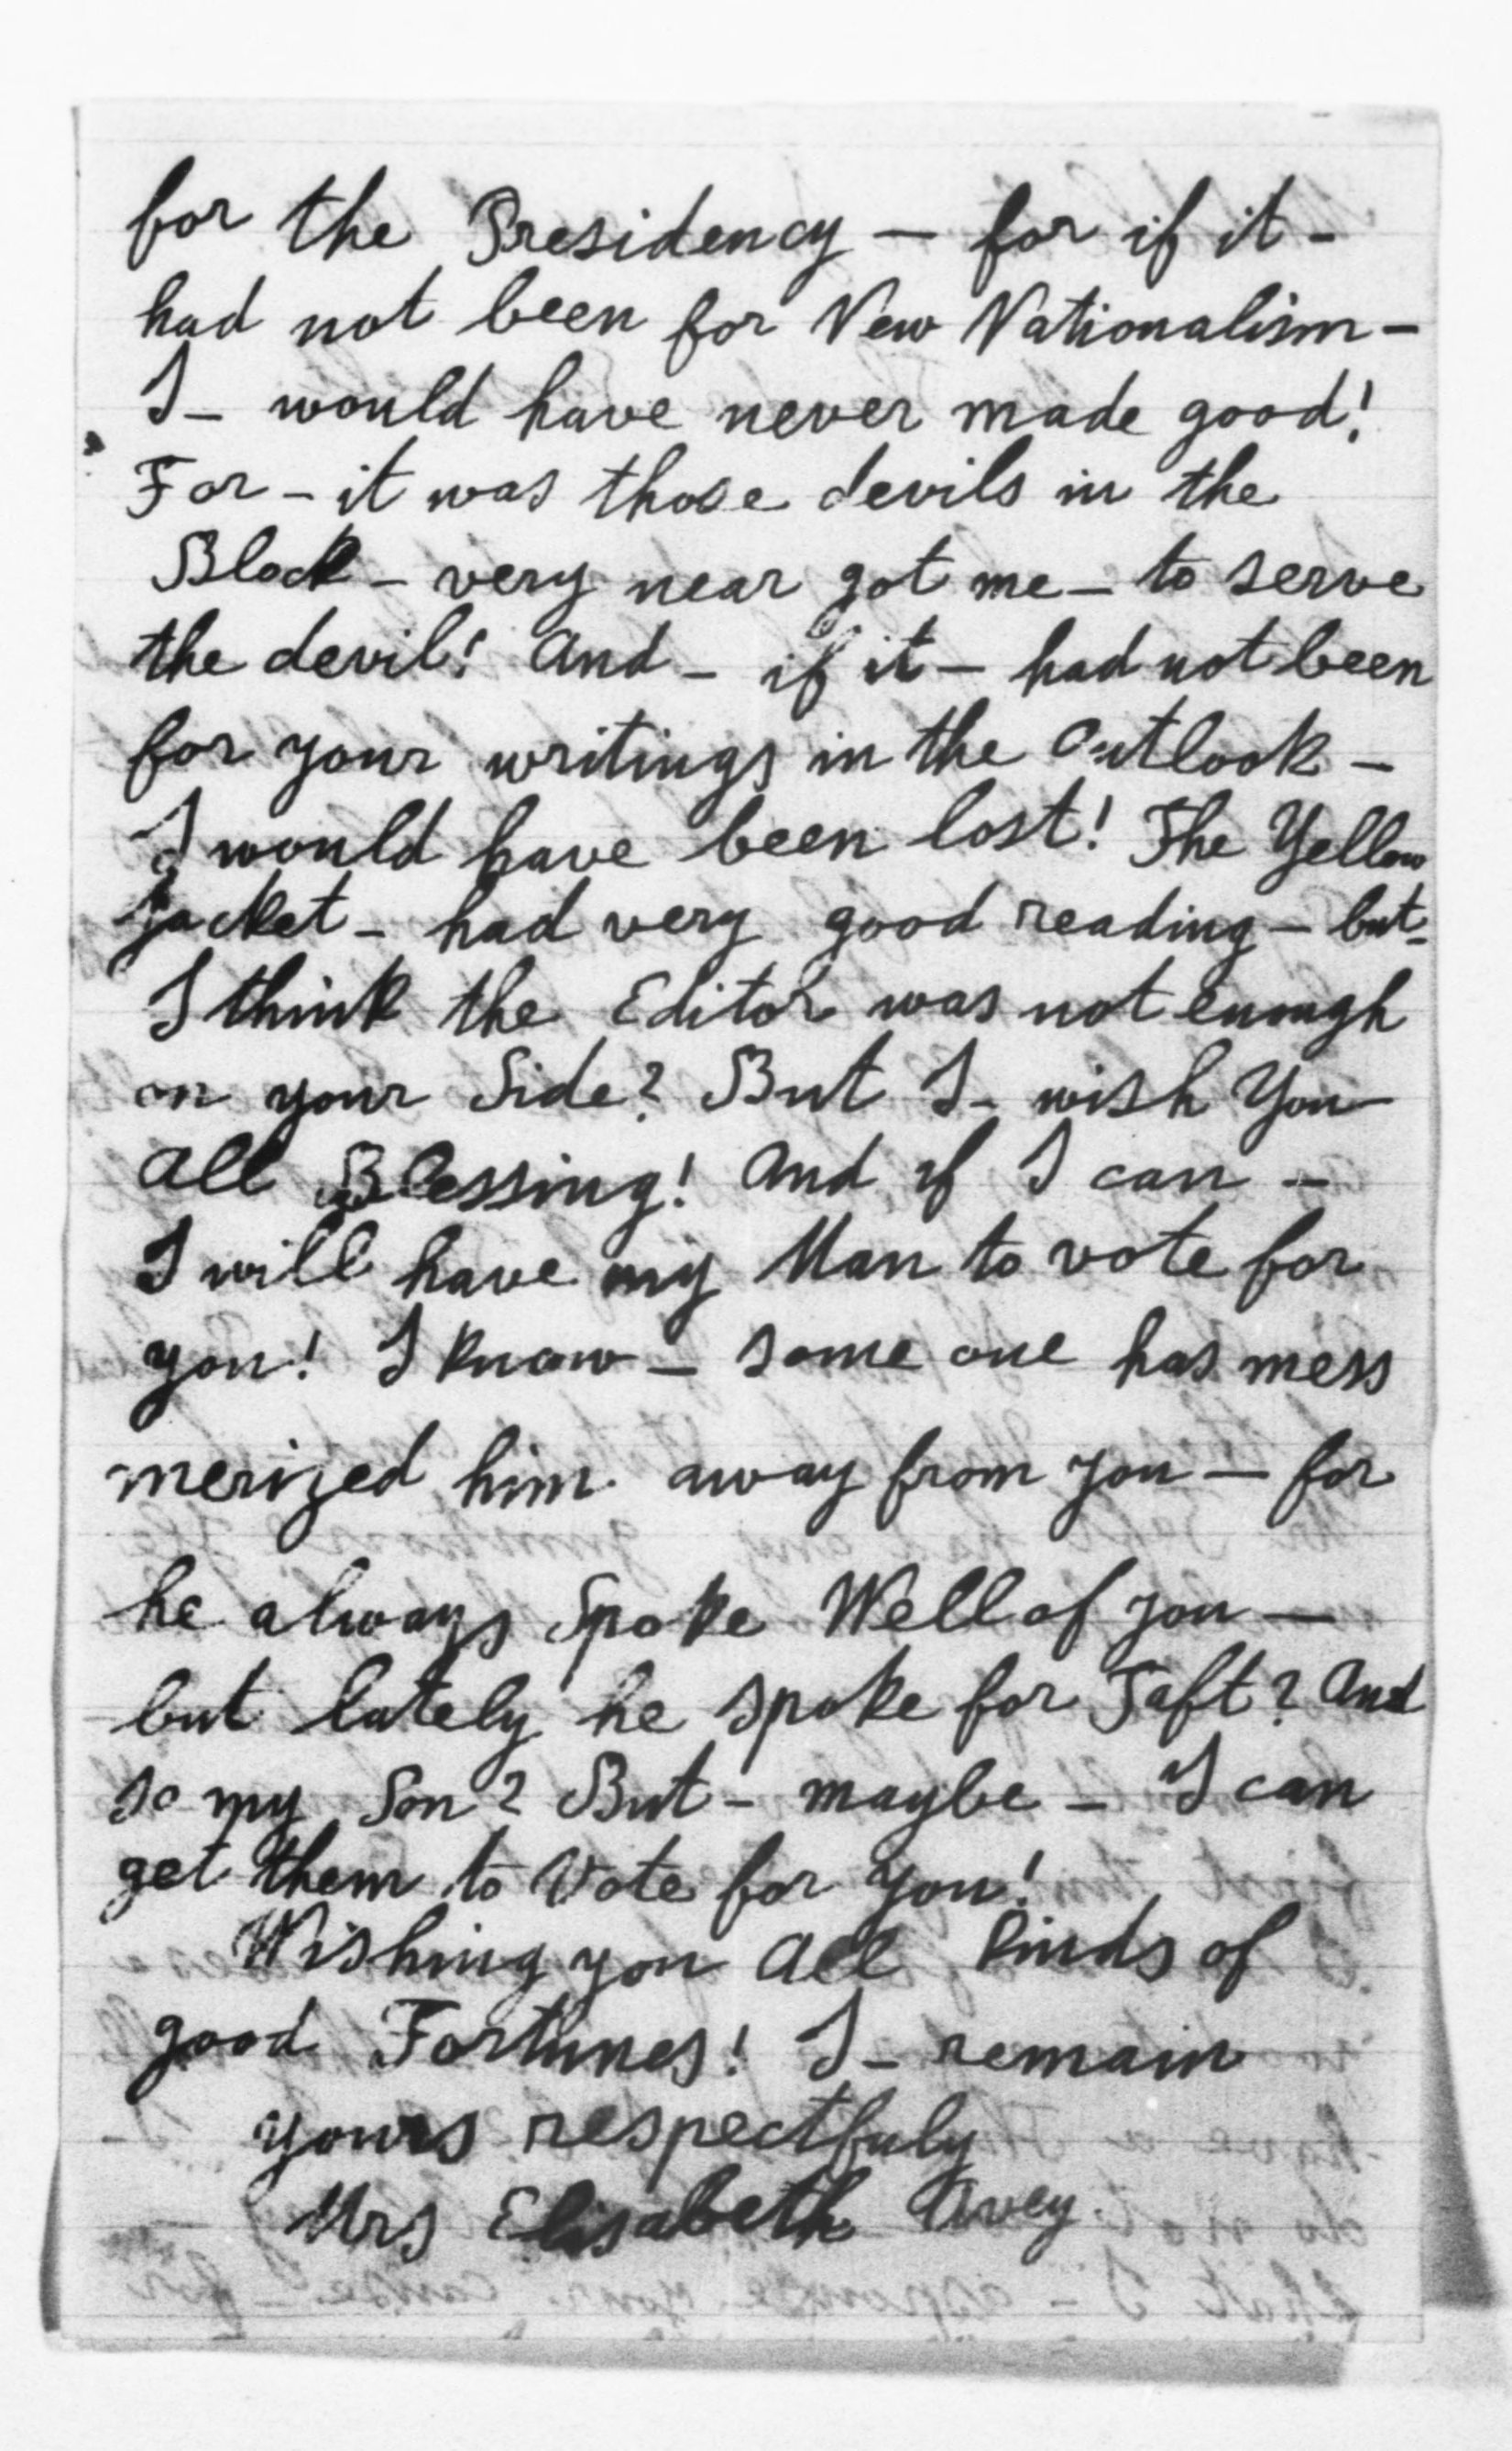 for the Presidency — for if it -
had not been for New Nationalism -
I - would have never made good!
For - it was those devils in the
Block - very near got me - to serve
the devil! And - if it - had not been
for your writings in the Outlook -
I would have been lost! The Yellow
Jacket - had very good reading - but -
I think the Editor was not enough
on your Side? But I - wish You
all Blessing! And if I can -
I will have my Man to vote for
you! I know - some one has mess
merized him away from you - for
he always Spoke Well of you —
but lately he spoke for Taft? And
so my Son? But - maybe - I can
get them to Vote for you!
Wishing you all kinds of
good Fortunes! I - remain
yours respectfuly
Mrs Elisabeth Avey.